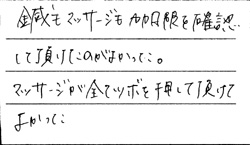 鍼もマッサージも力加限を確認
して頂けたのがよかった。
マッサージが全てツボを押して頂けて
よかった